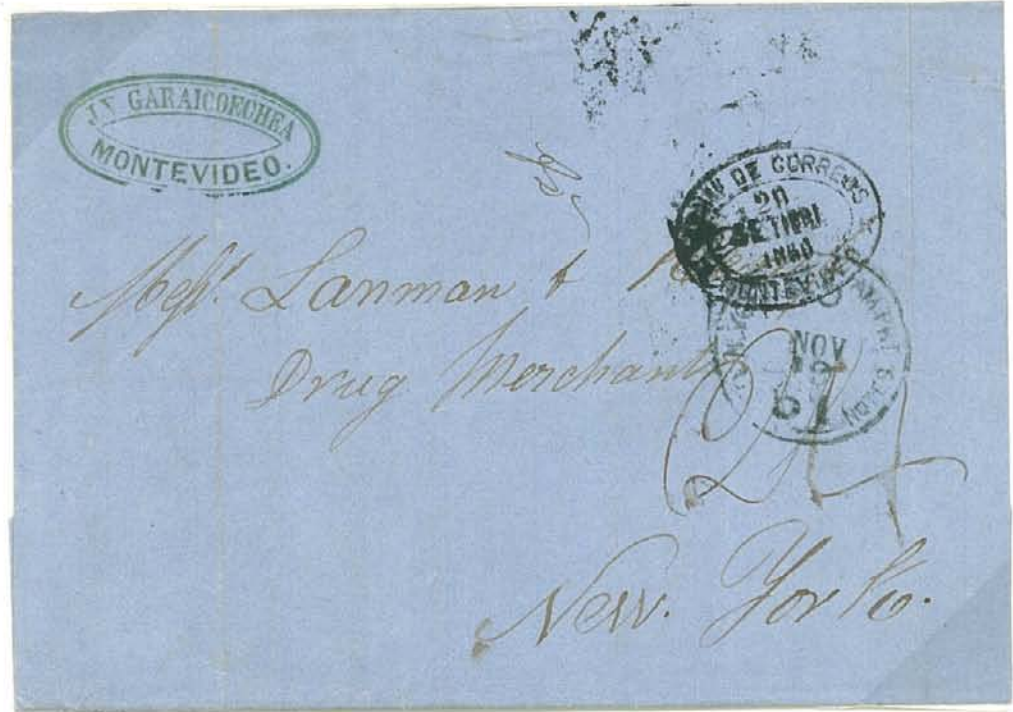 J.Y. GARAICOECHEA
MONTEVIDEO.
DE CORREOS
20
SETIBRE
1860
MONTEVIDEO
NOV
Messrs. Lanman &
Drug Merchants
24
New. York.